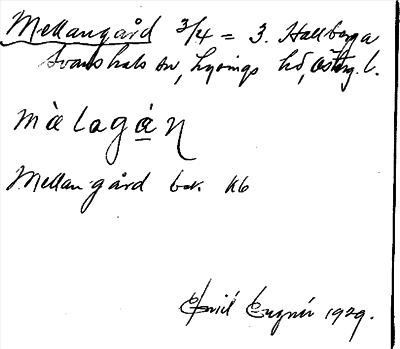 Mellangård 3/4 = 3. Hallboga
Svanshals sn, Lysings hd, Östg. l.
màlaga̱n
Mellangård bet. Kb
Emil Eugnér 1929.